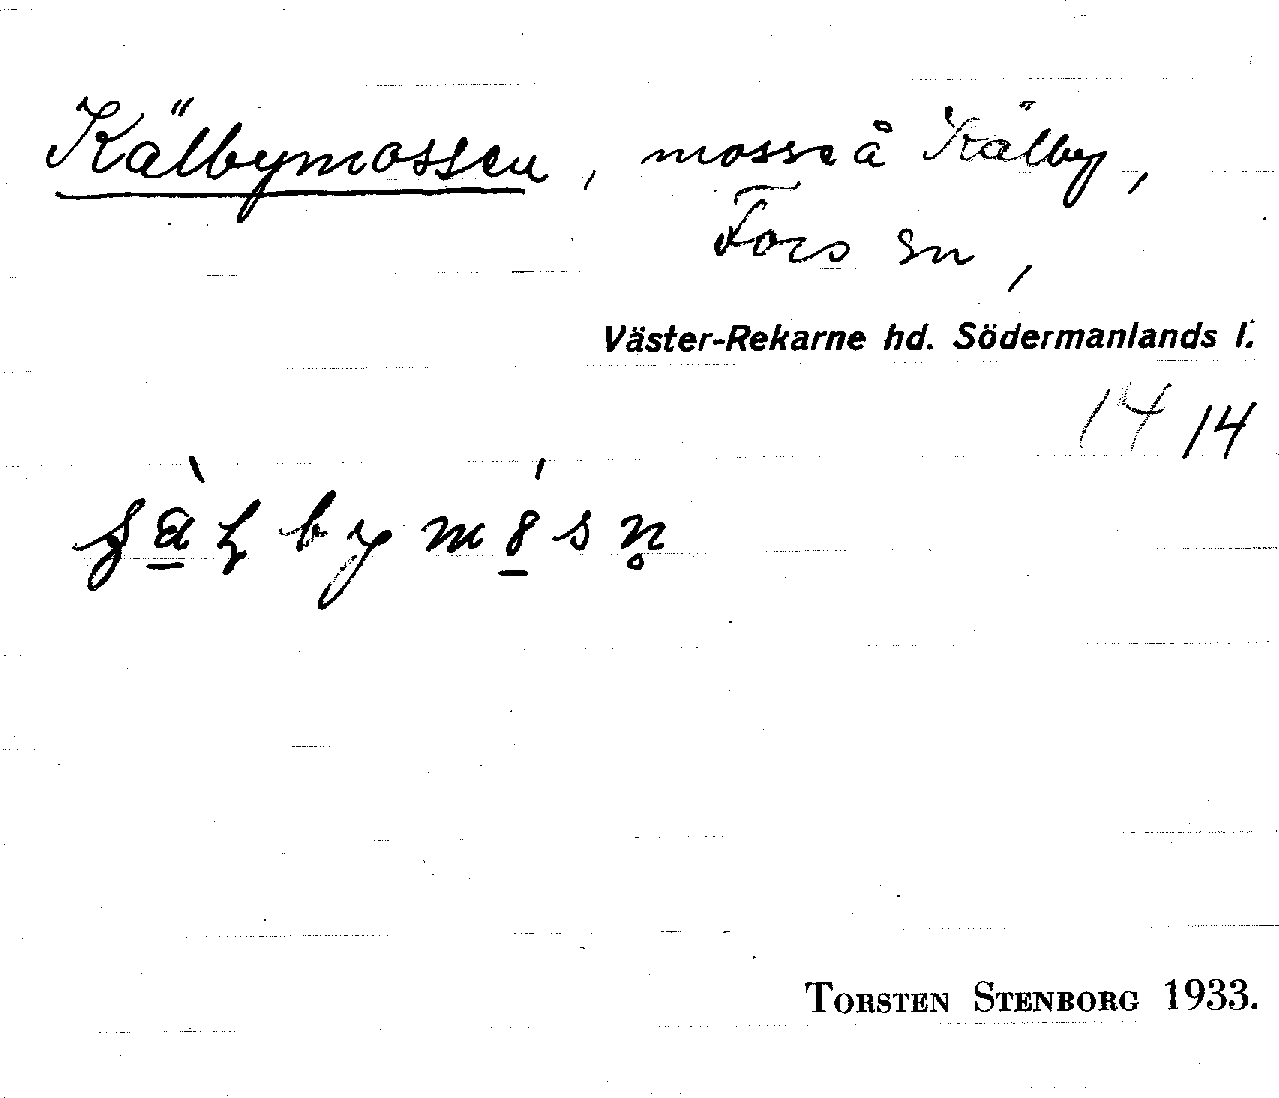 Kälbymossen, mosse å Kälby,
Fors sn,
Väster-Rekarne hd. Södermanlands l.
14 14
TORSTEN STENBORG 1933.